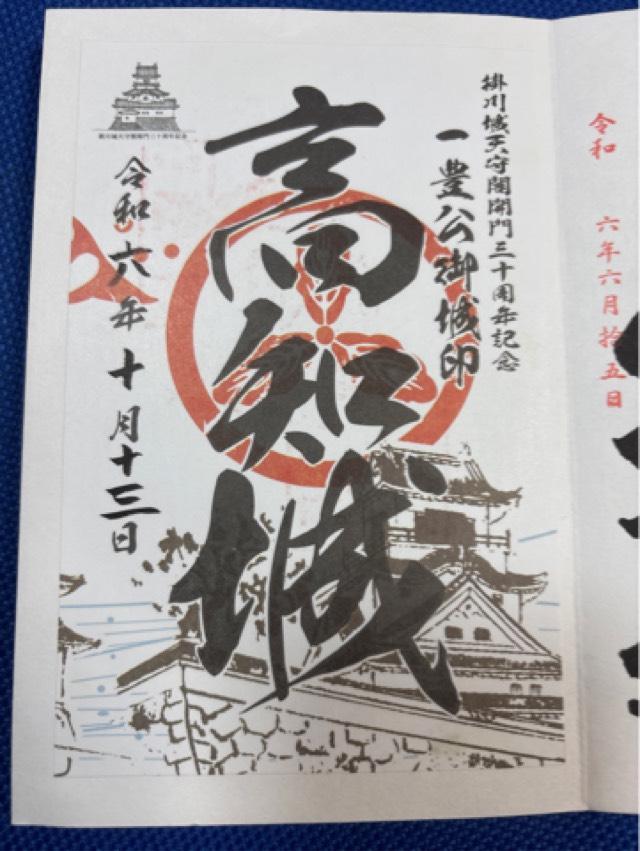 掛川城天守閣開門三十周年記念
一豊公御城印
高知城
令和六年十月十三日
掛川城天守閣開門三十周年記念
令和 六年六月拾五日